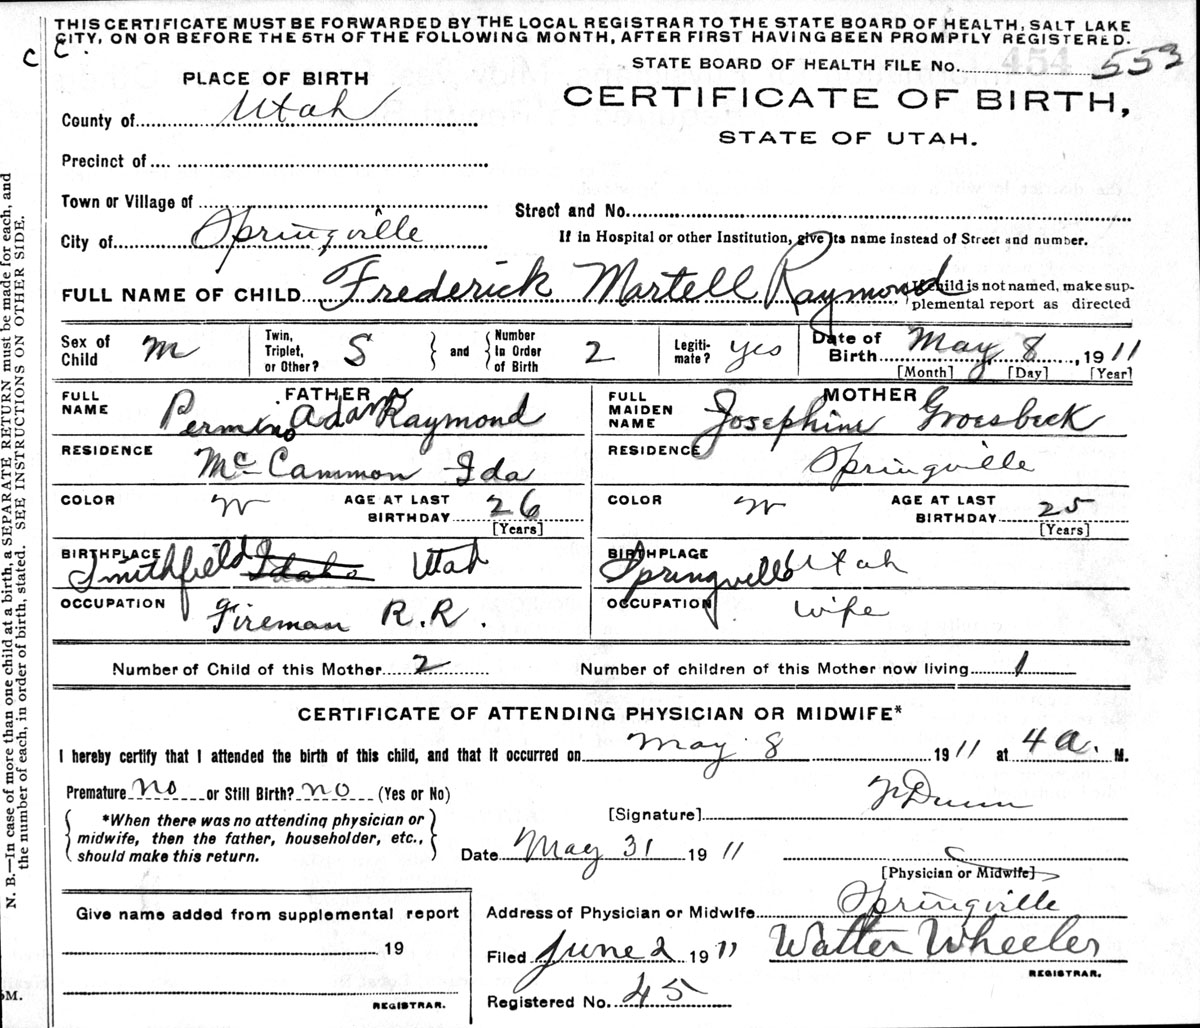 THIS CERTIFICATE MUST BE FORWARDED BY THE LOCAL REGISTRAR TO THE STATE BOARD OF HEALTH, SALT LAKE
CITY, ON OR BEFORE THE 5TH OF THE FOLLOWING MONTH, AFTER FIRST HAVING BEEN PROMPTLY REGISTERED.
C C.
STATE BOARD OF HEALTH FILE No. 454 553
PLACE OF BIRTH
CERTIFICATE OF BIRTH,
STATE OF UTAH.
County of Utah
Precinct of
Town or Village of
Street and No.
City of Springville
If in Hospital or other Institution, give its name instead of Street and number.
FULL NAME OF CHILD Frederick Martell Raymond
If child is not named, make sup-
plemental report as directed
Sex of Child M
Twin, Triplet, or Other? S and Number In Order of Birth 2
Legiti-mate? yes
Date of Birth May 8, 1911
[Month] [Day] [Year]
FATHER
FULL NAME Permino Adam Raymond
RESIDENCE McCammon Ida
COLOR W AGE AT LAST BIRTHDAY 26
[Years]
BIRTHPLACE Smithfield Idaho Utah
OCCUPATION Fireman R.R.
MOTHER
FULL MAIDEN NAME Josephine Groesbeck
RESIDENCE Springville
COLOR W AGE AT LAST BIRTHDAY 25
[Years]
BIRTHPLACE Springville Utah
OCCUPATION Wife
Number of Child of this Mother 2 Number of children of this Mother now living 1
CERTIFICATE OF ATTENDING PHYSICIAN OR MIDWIFE*
I hereby certify that I attended the birth of this child, and that it occurred on May 8 1911 at 4 a. M.
Premature no or Still Birth? no (Yes or No)
*When there was no attending physician or
midwife, then the father, householder, etc.,
should make this return.
[Signature] Dunn
Date May 31 1911
[Physician or Midwife]
Address of Physician or Midwife Springville
Filed June 2 1911 Walter Wheeler
REGISTRAR.
Registered No. 45
Give name added from supplemental report
19
REGISTRAR.
N. B.—In case of more than one child at a birth, a SEPARATE RETURN must be made for each, and
the number of each, in order of birth, stated. SEE INSTRUCTIONS ON OTHER SIDE.
5M.